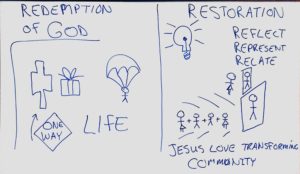 REDEMPTION
OF GOD
ONE
WAY
LIFE
RESTORATION
REFLECT
REPRESENT
RELATE
JESUS LOVE TRANSFORMING
COMMUNITY